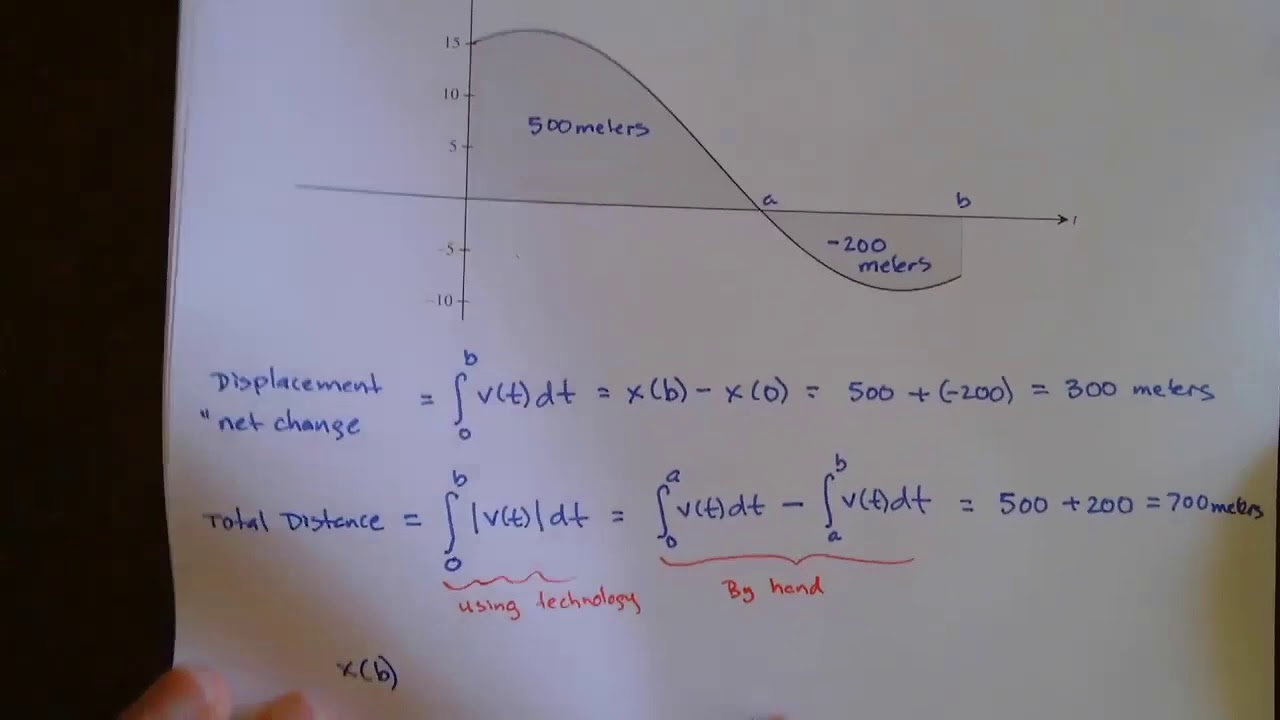 15
10
500 meters
5
a
b
t
-5
-200
meters
-10
Displacement = ∫₀ᵇ v(t) dt = x(b) - x(0) = 500 + (-200) = 300 meters
"net change
Total Distance = ∫₀ᵇ |v(t)| dt = ∫₀ᵃ v(t) dt - ∫ₐᵇ v(t) dt = 500 + 200 = 700 meters
using technology By hand
x(b)